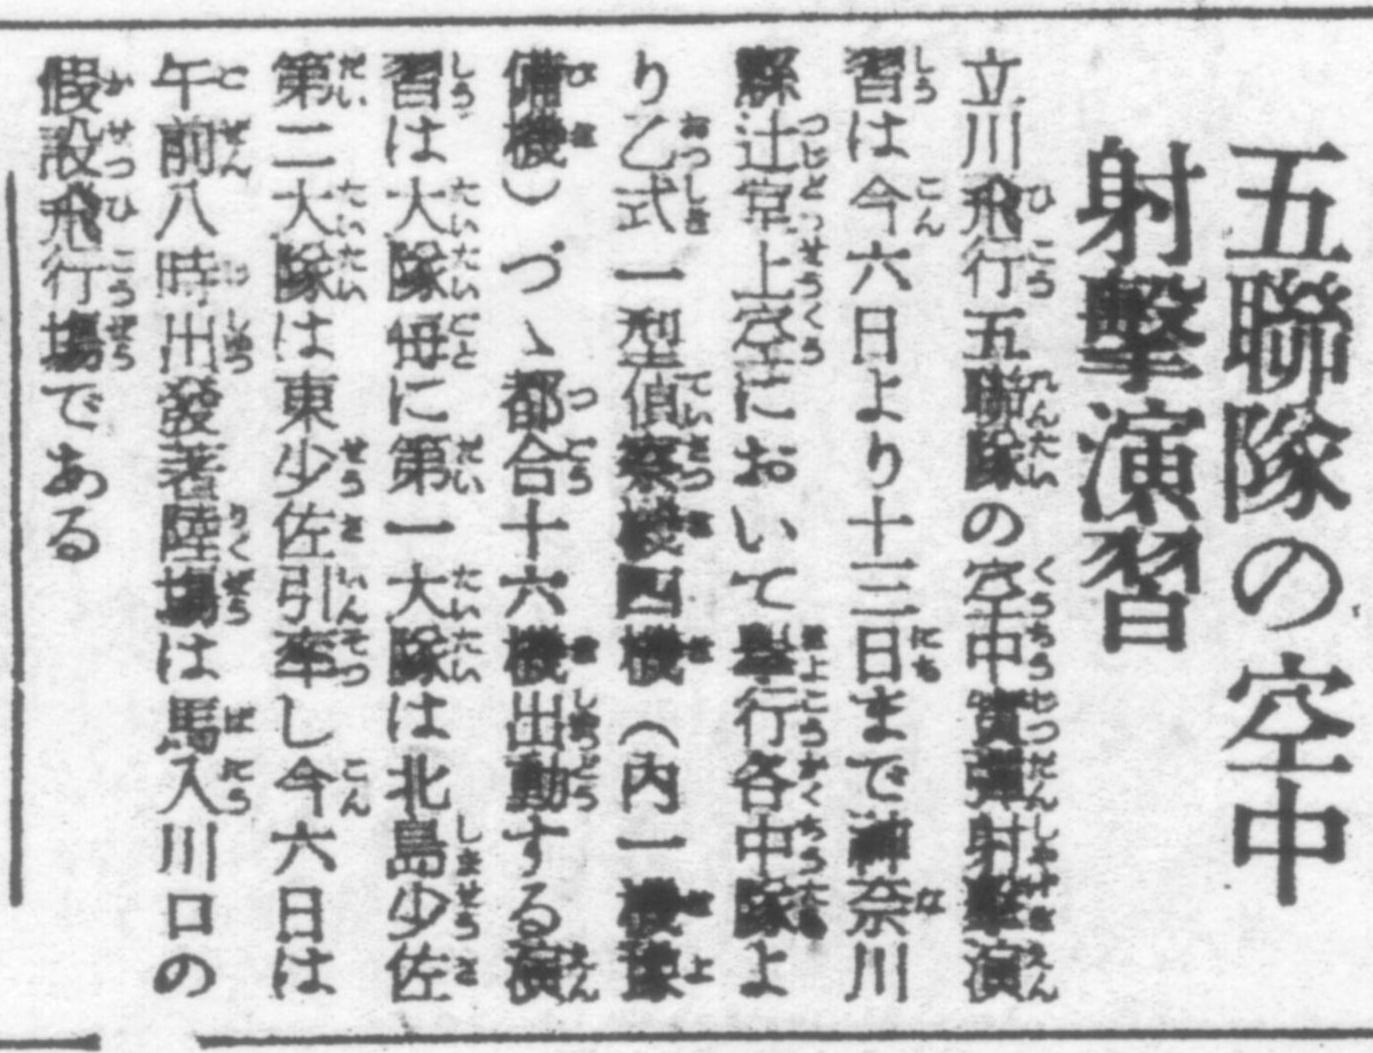 五聯隊の空中
射撃演習
立川飛行五聯隊の空中實彈射撃演
習は今六日より十三日まで神奈川
縣辻堂上空において擧行各中隊よ
り乙式一型偵察機四機（内一機豫
備機）づゝ都合十六機出動する演
習は大隊毎に第一大隊は北島少佐
第二大隊は東少佐引率し今六日は
午前八時出發著陸場は馬入川口の
假設飛行場である